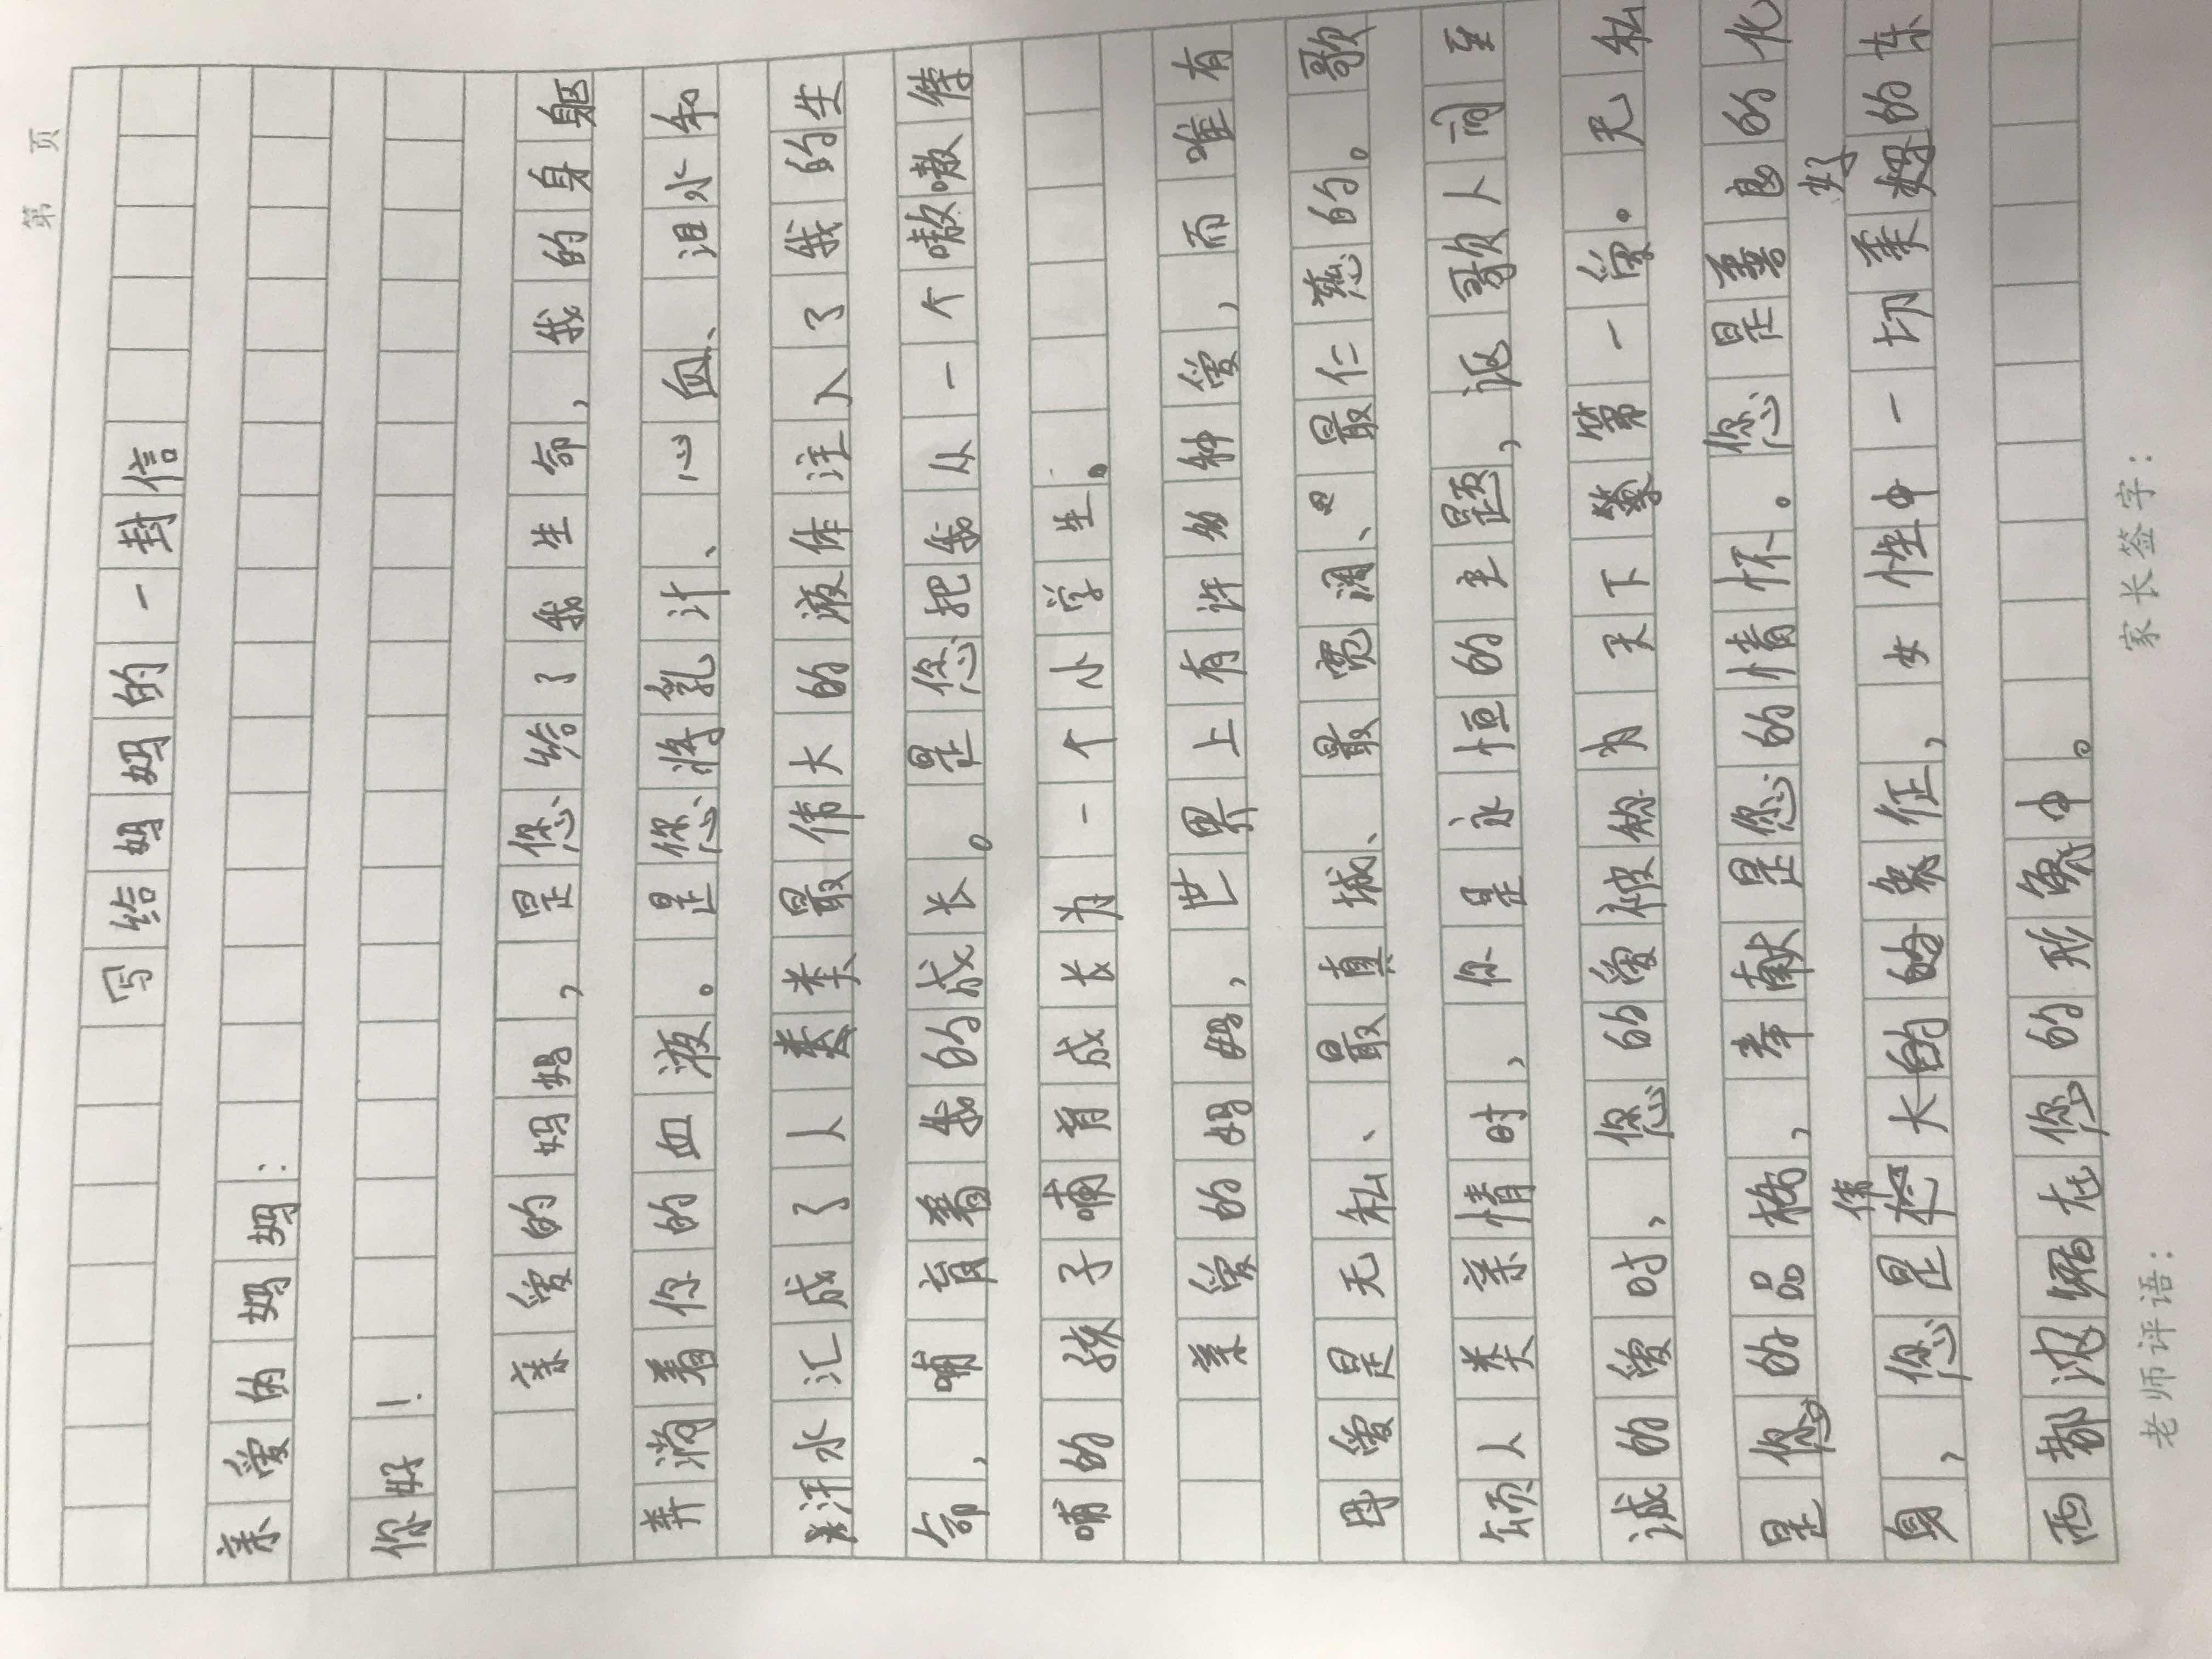 第 页
写给妈妈的一封信
亲爱的妈妈：
你好！
亲爱的妈妈，是您给了我生命，我的身躯
奔淌着你的血液。是您将乳汁、心血、泪水和
汗水汇成了人类最伟大的液体注入了我的生
命，哺育着我的成长。是您把我从一个嗷嗷待
哺的孩子哺育成长为一个小学生。
亲爱的妈妈，世界上有许多种爱，而唯有
母爱是无私、最真城、最宽阔、最仁慈的。歌
颂人类亲情时，你是永恒的主题，讴歌人间至
诚的爱时，您的爱被称为天下第一爱。无私
是您的品格，奉献是您的情怀。您是善良的化
身，您是伟大的的象征，女性中一切美好的东
西都浓缩在您的形象中。
老师评语： 家长签字：